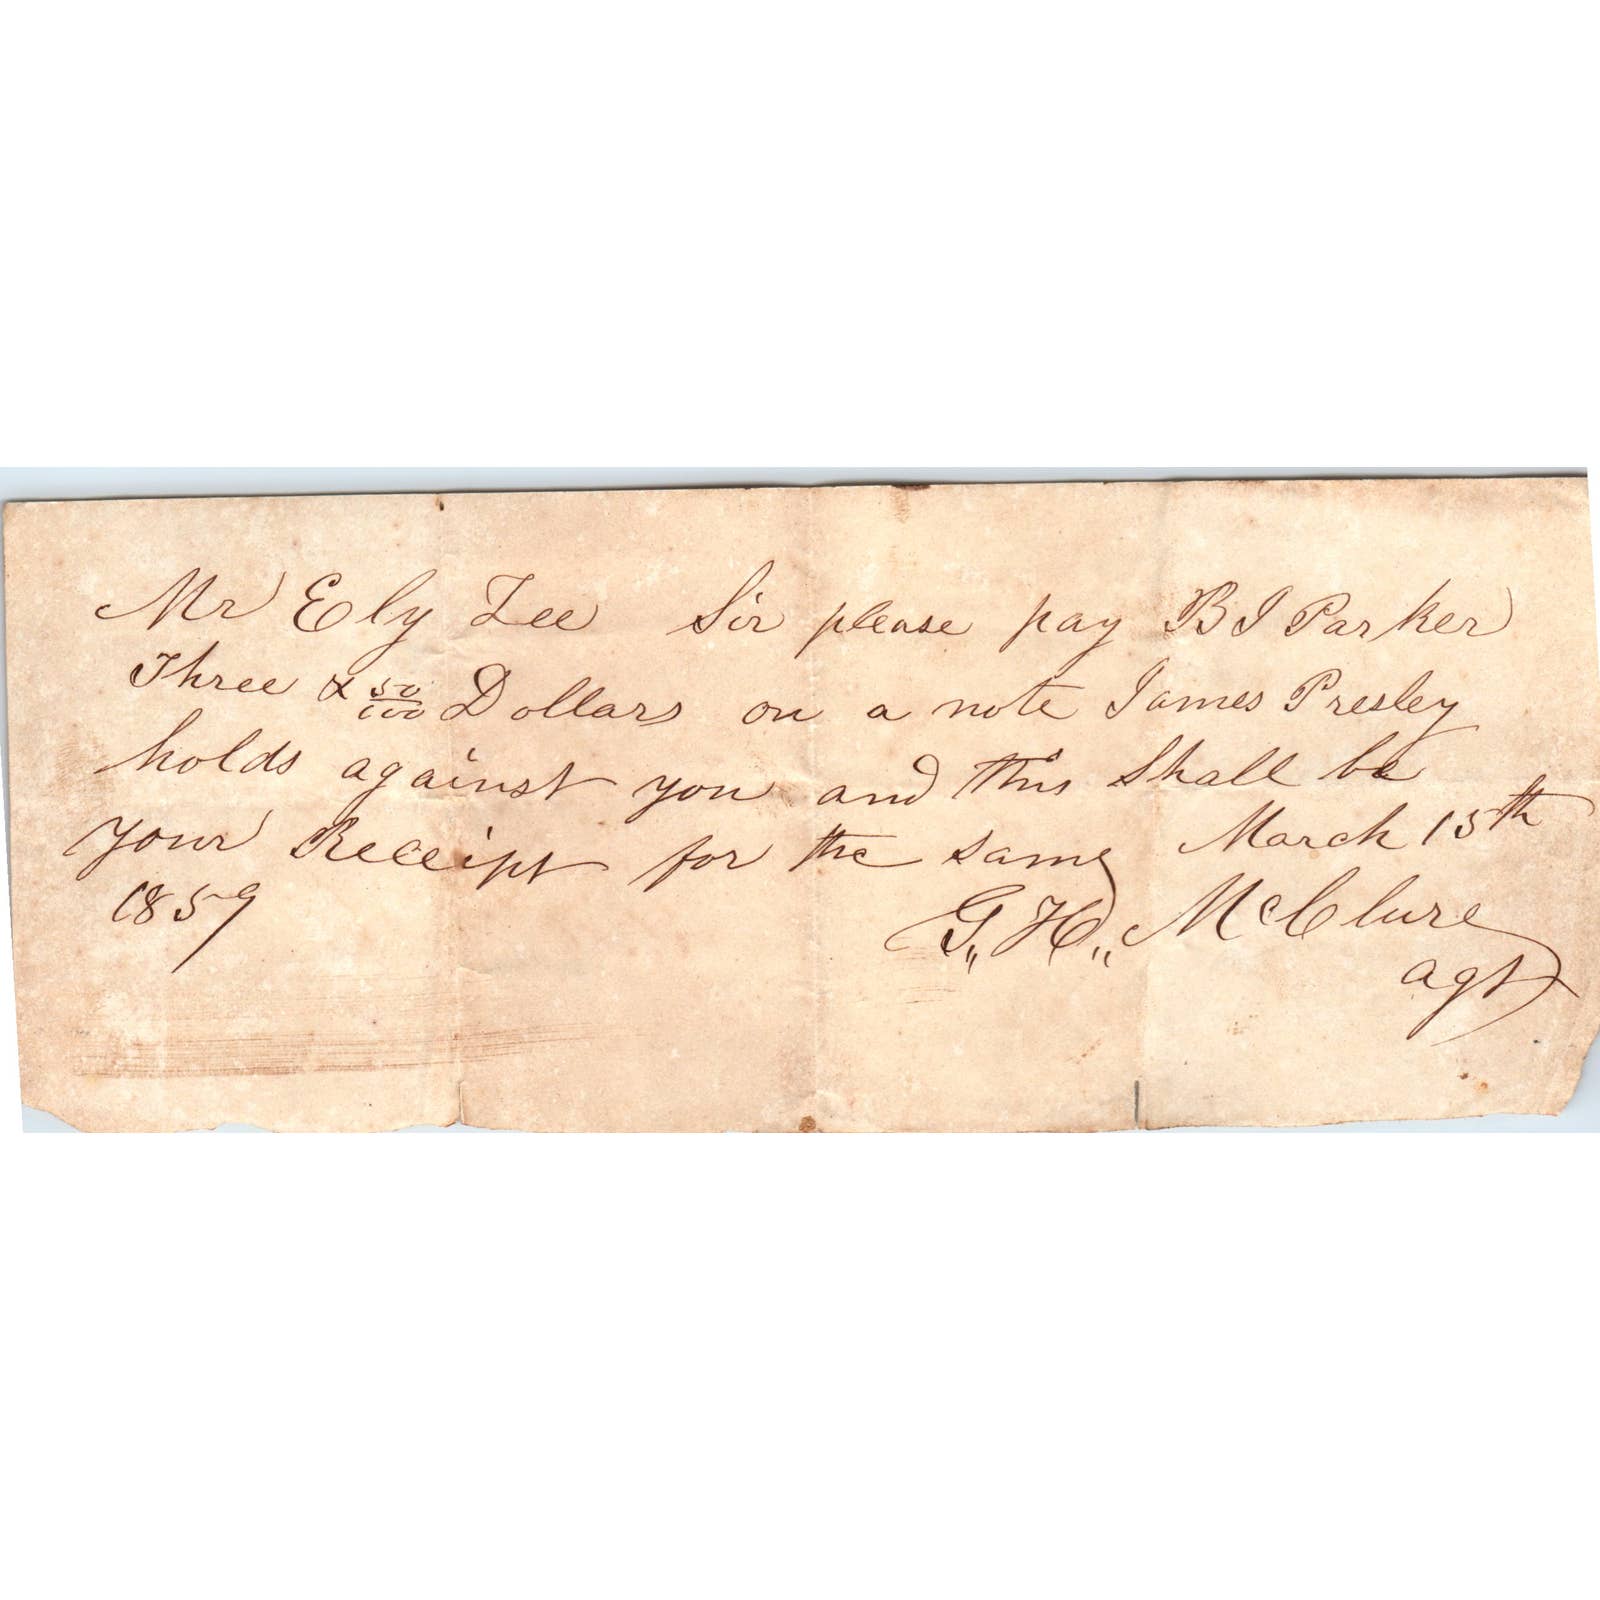 Mr Ely Lee Sir please pay B J Parker
Three & 50/100 Dollars on a note James Presley
holds against you and this Shall be
your Receipt for the same March 15th
1859 G,, H,, McClure
agt